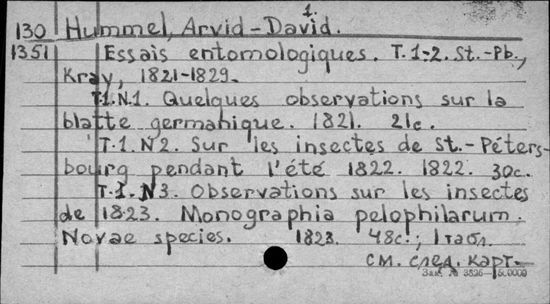 1.
130 Hummel, Arvid-David.
1351 Essais entomologiques. T. 1-2. St.-Pb.,
Kray, 1821-1829.
T.1.N.1. Quelques observations sur la
blatte germanique. 1821. 21c.
T.1. N2. Sur les insectes de St.-Péters-
bourg pendant l'été 1822. 1822. 30c.
T.1. N3. Observations sur les insectes
de 1823. Monographia pelophilarum.
Novae species. 1823. 48c.; 1 табл.
см. след. карт.
Зак. № 3526